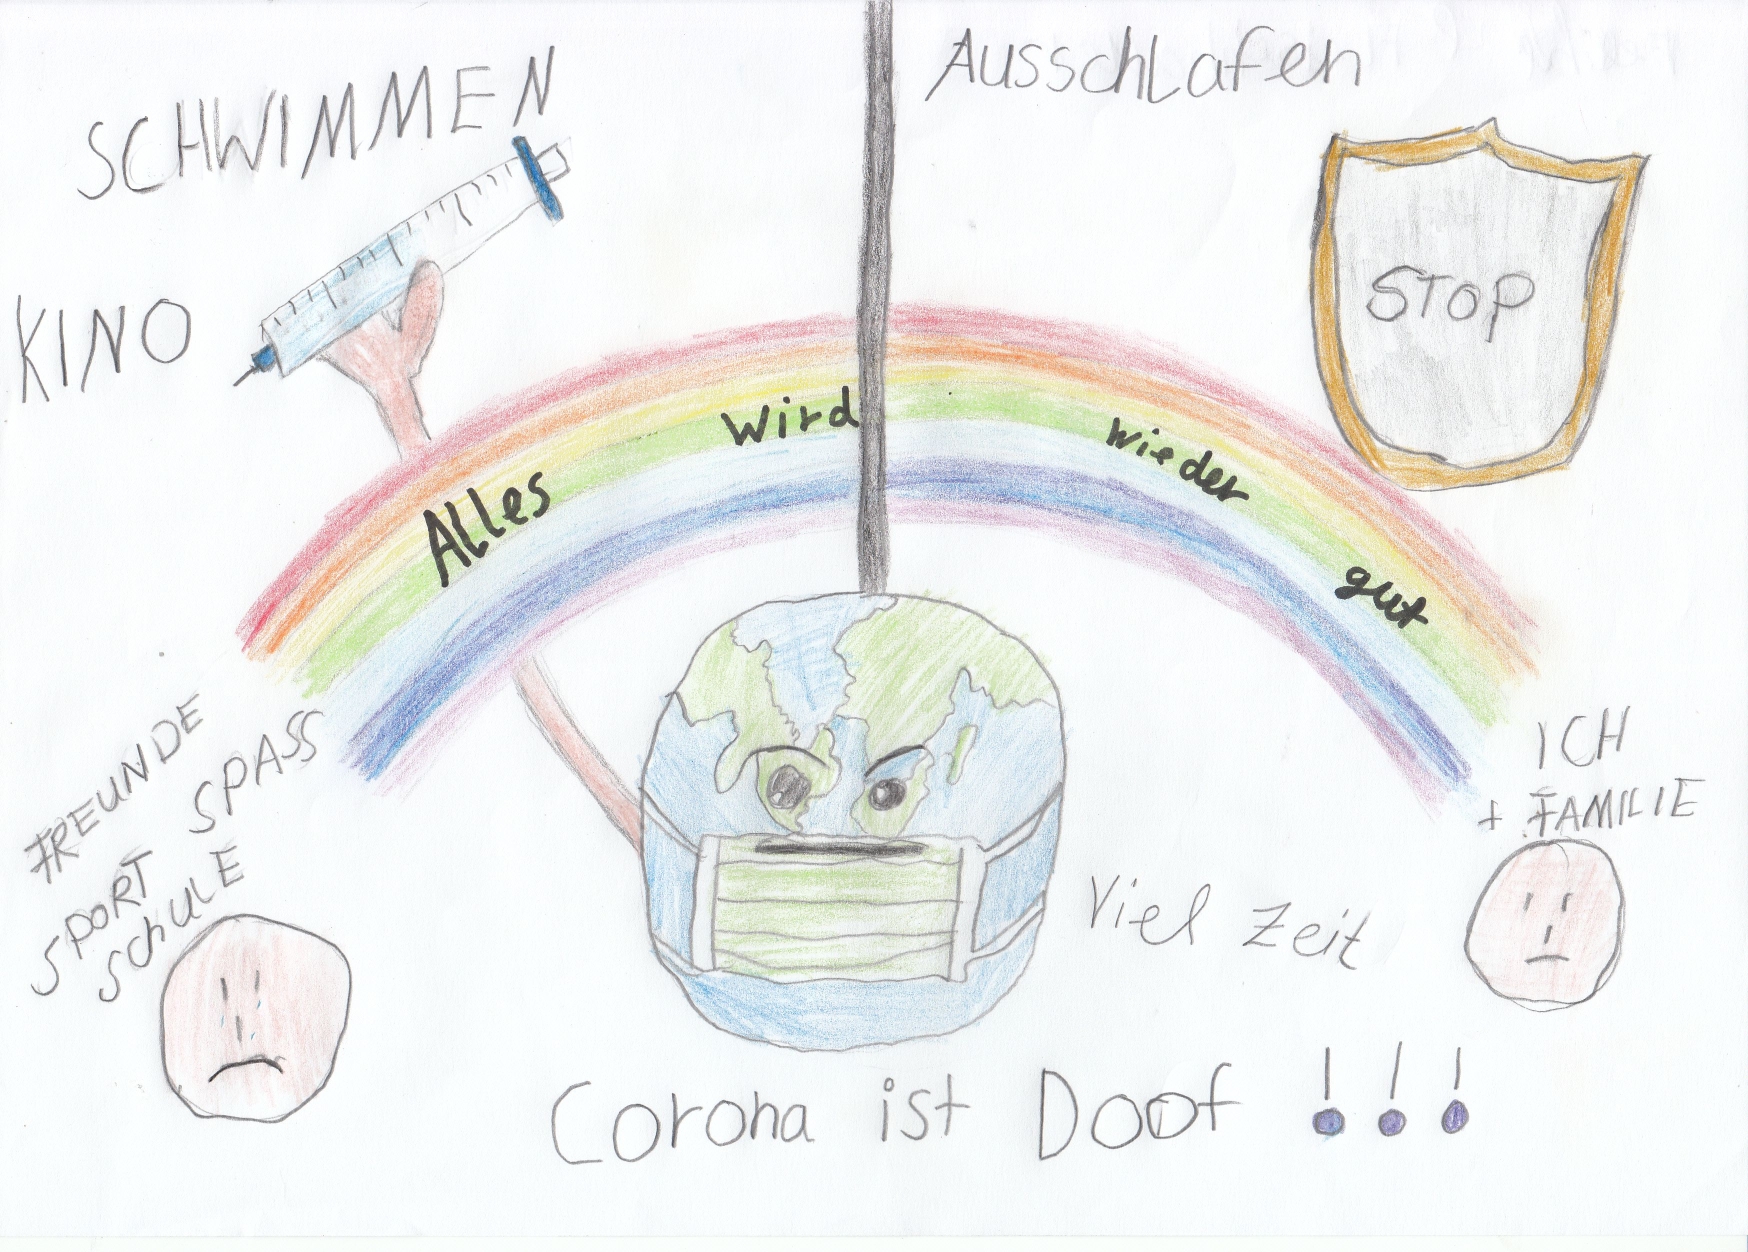 SCHWIMMEN
KINO
AusschLafen
STOP
ALLes wird wieder gut
FREUNDE
SPASS
SPORT
SchULE
ICH
+ FAMILIE
Viel Zeit
Corona ist Doof !!!